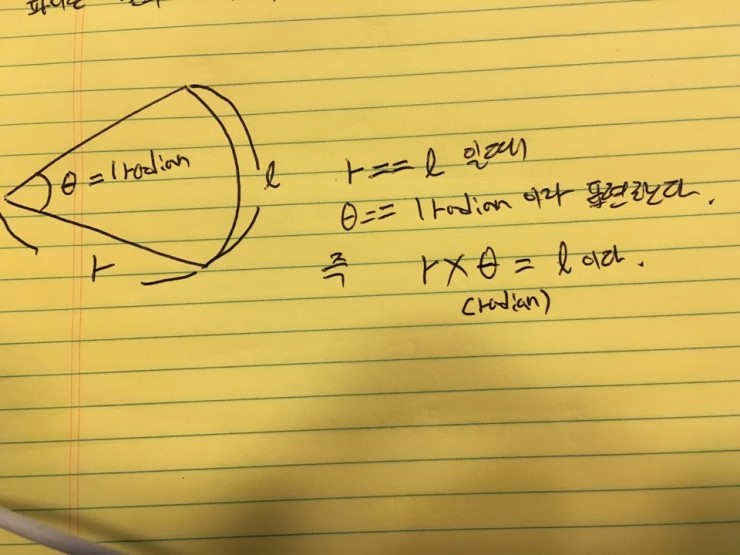 파이는
θ = 1 radian
l
r
r == l 일때
θ == 1 radian 이라 표현한다.
즉 r × θ = l 이다.
(radian)